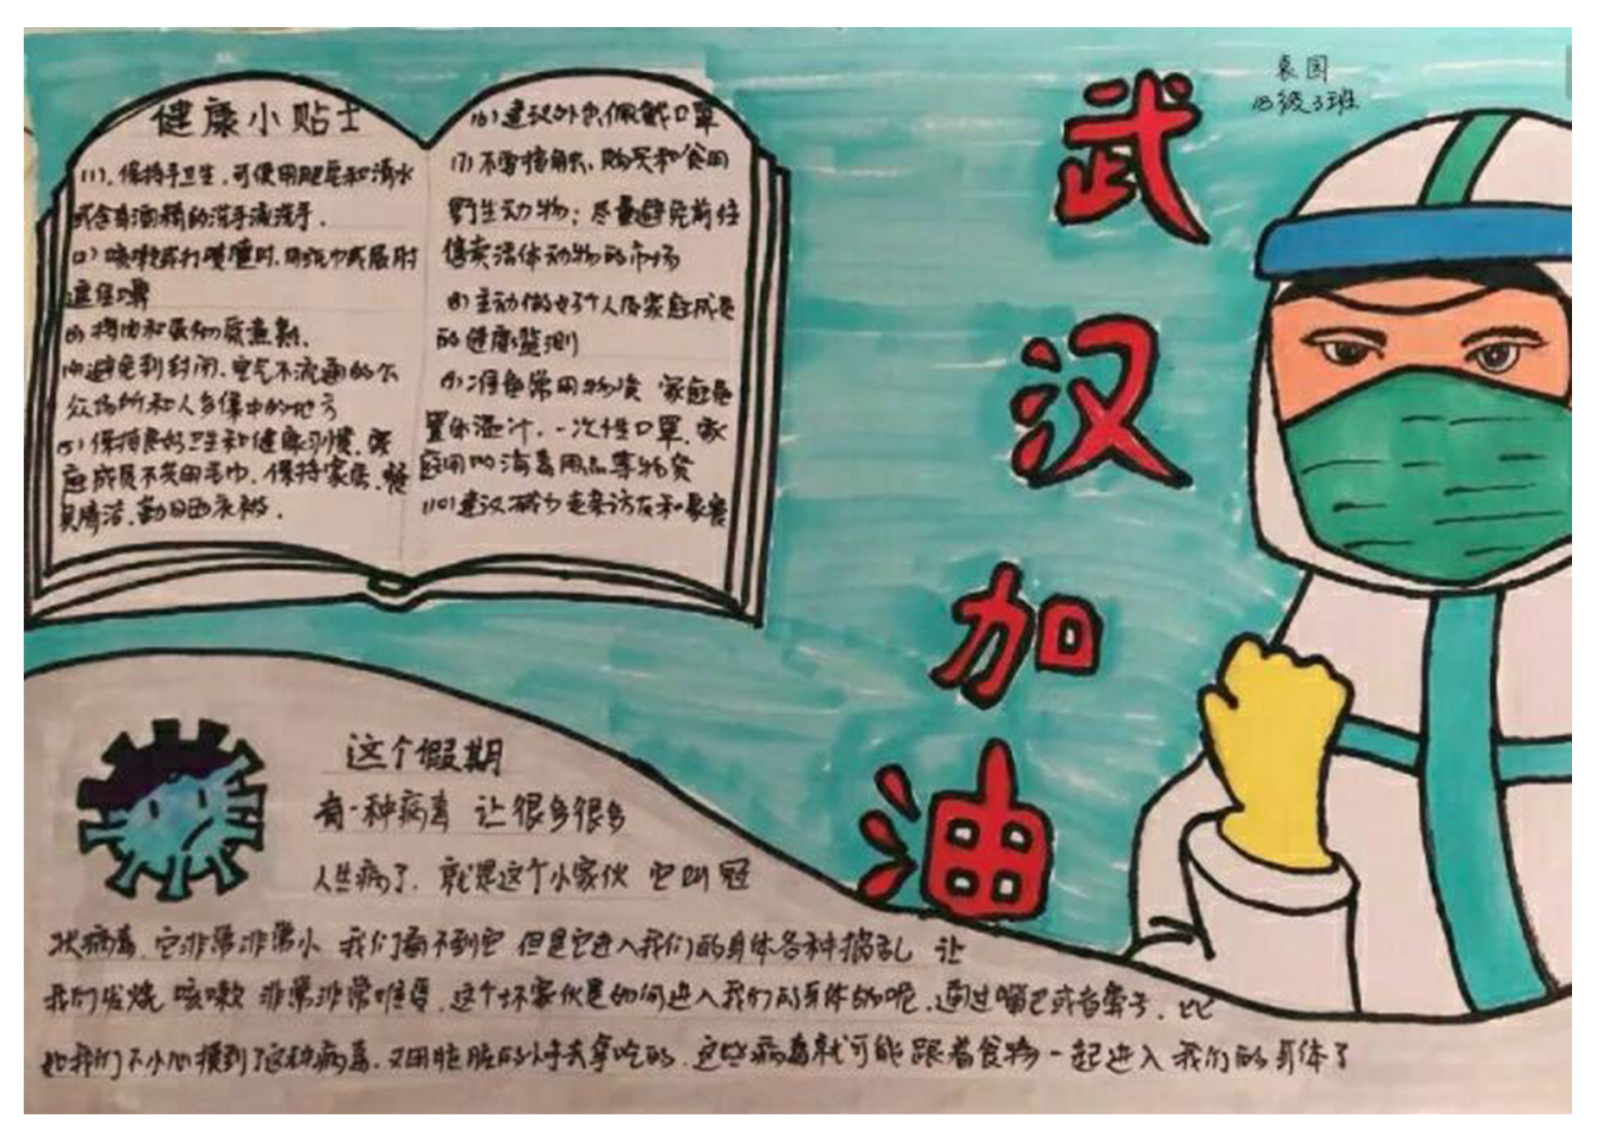 健康小贴士
(1)、保持手卫生，可使用肥皂和清水
或含有酒精的洗手液洗手.
(2) 咳嗽或打喷嚏时，用纸巾或屈肘
遮住口鼻
(3) 将肉和蛋彻底煮熟.
(4) 避免到封闭、空气不流通的公
众场所和人多集中的地方
(5) 保持良好卫生和健康习惯，家
庭成员不共用毛巾，保持家居、餐
具清洁，勤日晒衣被.
(6) 建议外出佩戴口罩
(7) 不要接触、购买和食用
野生动物；尽量避免前往
售卖活体动物的市场
(8) 主动做好个人及家庭成员
的健康监测
(9) 准备常用物资 家庭
置体温计，一次性口罩，家
庭用的消毒用品等物资
(10) 建议减少走亲访友和聚餐
武
汉
加
油
袁园
18级3班
这个假期
有一种病毒 让很多很多
人生病了，就是这个小家伙 它叫冠
状病毒，它非常非常小 我们看不到它 但是它进入我们的身体各种捣乱 让
我们发烧 咳嗽 非常非常难受，这个坏家伙是如何进入我们的身体的呢，通过嘴巴或者鼻子，比
如我们不小心摸到了这种病毒，又用脏脏的小手去拿吃的，这些病毒就可能跟着食物一起进入我们的身体了